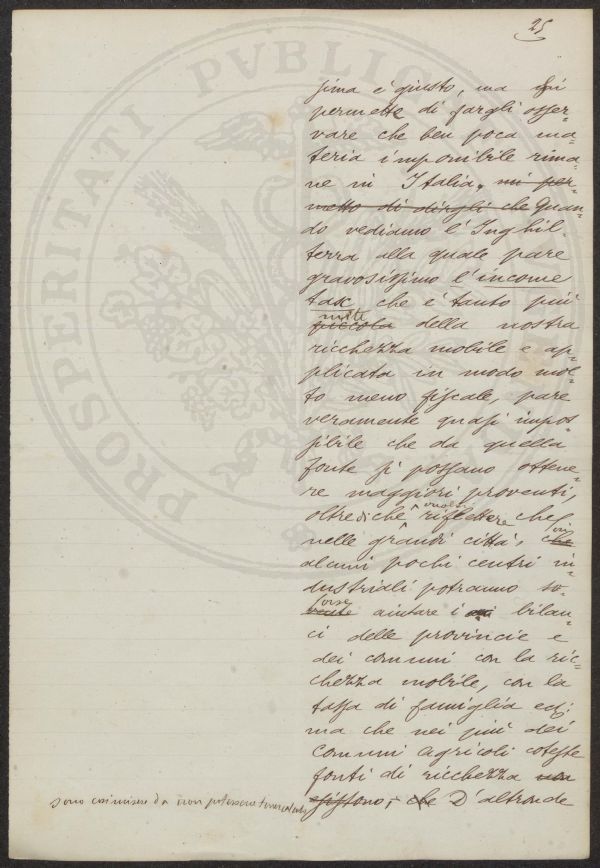 25
sima è giusto, ma mi
permette di fargli osser-
vare che ben poca ma-
teria imponibile rima-
ne in Italia, mi per-
metto di dirgli che Quan-
do vediamo l'Inghil-
terra alla quale pare
gravosissimo l'income
tax che è tanto più
mite
piccola della nostra
ricchezza mobile e ap-
plicata in modo mol-
to meno fiscale, pare
veramente quasi impos-
sibile che da quella
fonte si possano ottene-
re maggiori proventi,
oltrediché riflettere che
nelle grandi città, che
alcuni pochi centri in-
dustriali potranno so-
forse
vente aiutare i bilan-
ci delle provincie e
dei comuni con la ric-
chezza mobile, con la
tassa di famiglia ed:
ma che nei più dei
comuni agricoli coteste
fonti di ricchezza non
sono così misere da non potersene tener calcolo
esistono, che D'altronde
PROSPERITATI PVBLICAE